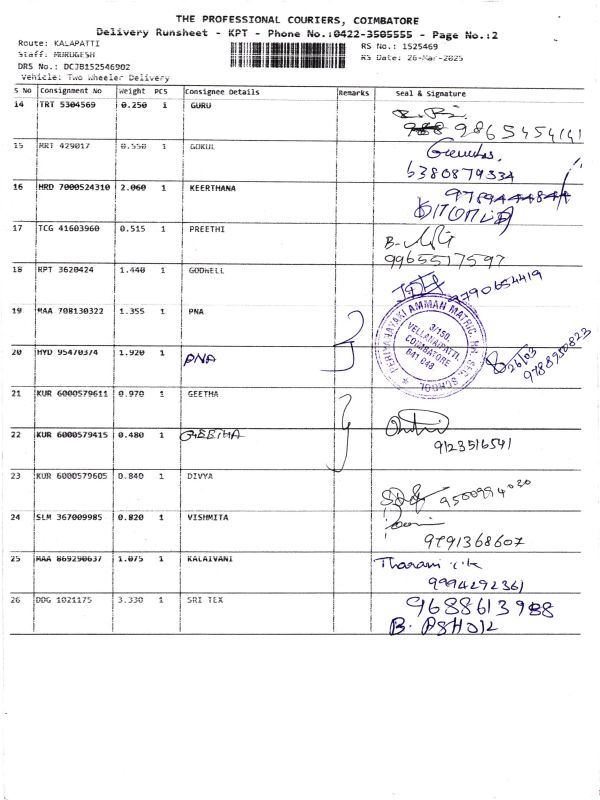 THE PROFESSIONAL COURIERS, COIMBATORE
Delivery Runsheet - KPT - Phone No.:0422-3505555 - Page No.:2
Route: KALAPATTI
Staff: MURUGESH
DRS No.: DCJB152546902
Vehicle: Two Wheeler Delivery
RS No.: 1525469
RS Date: 26-Mar-2025
S No Consignment No Weight PCS Consignee Details Remarks Seal & Signature
14 TRT 5304569 0.250 1 GURU
9865454141
15 MRT 429017 0.550 1 GOKUL
6380879334
16 MRD 7000524310 2.060 1 KEERTHANA
17 TCG 41603960 0.515 1 PREETHI
9965517597
18 KPT 3620424 1.440 1 GODWELL
9790654419
19 MAA 708130322 1.355 1 PNA
PERIYA NAYAKI AMMAN MATRIC. HR. SEC. SCHOOL
3/150,
VELLANAIPATTI,
COIMBATORE
641 048
26/03
9788950823
20 HYD 95470374 1.920 1 PNA
21 KUR 6000579611 0.970 1 GEETHA
22 KUR 6000579415 0.480 1 GEETHA
9123516541
23 KUR 6000579605 0.840 1 DIVYA
9500994030
24 SLM 367009985 0.820 1 VISHMITA
9791368607
25 MAA 869290637 1.075 1 KALAIVANI
Tharani
9994292361
26 DDG 1021175 3.330 1 SRI TEX
9688613988
B. ASHOK